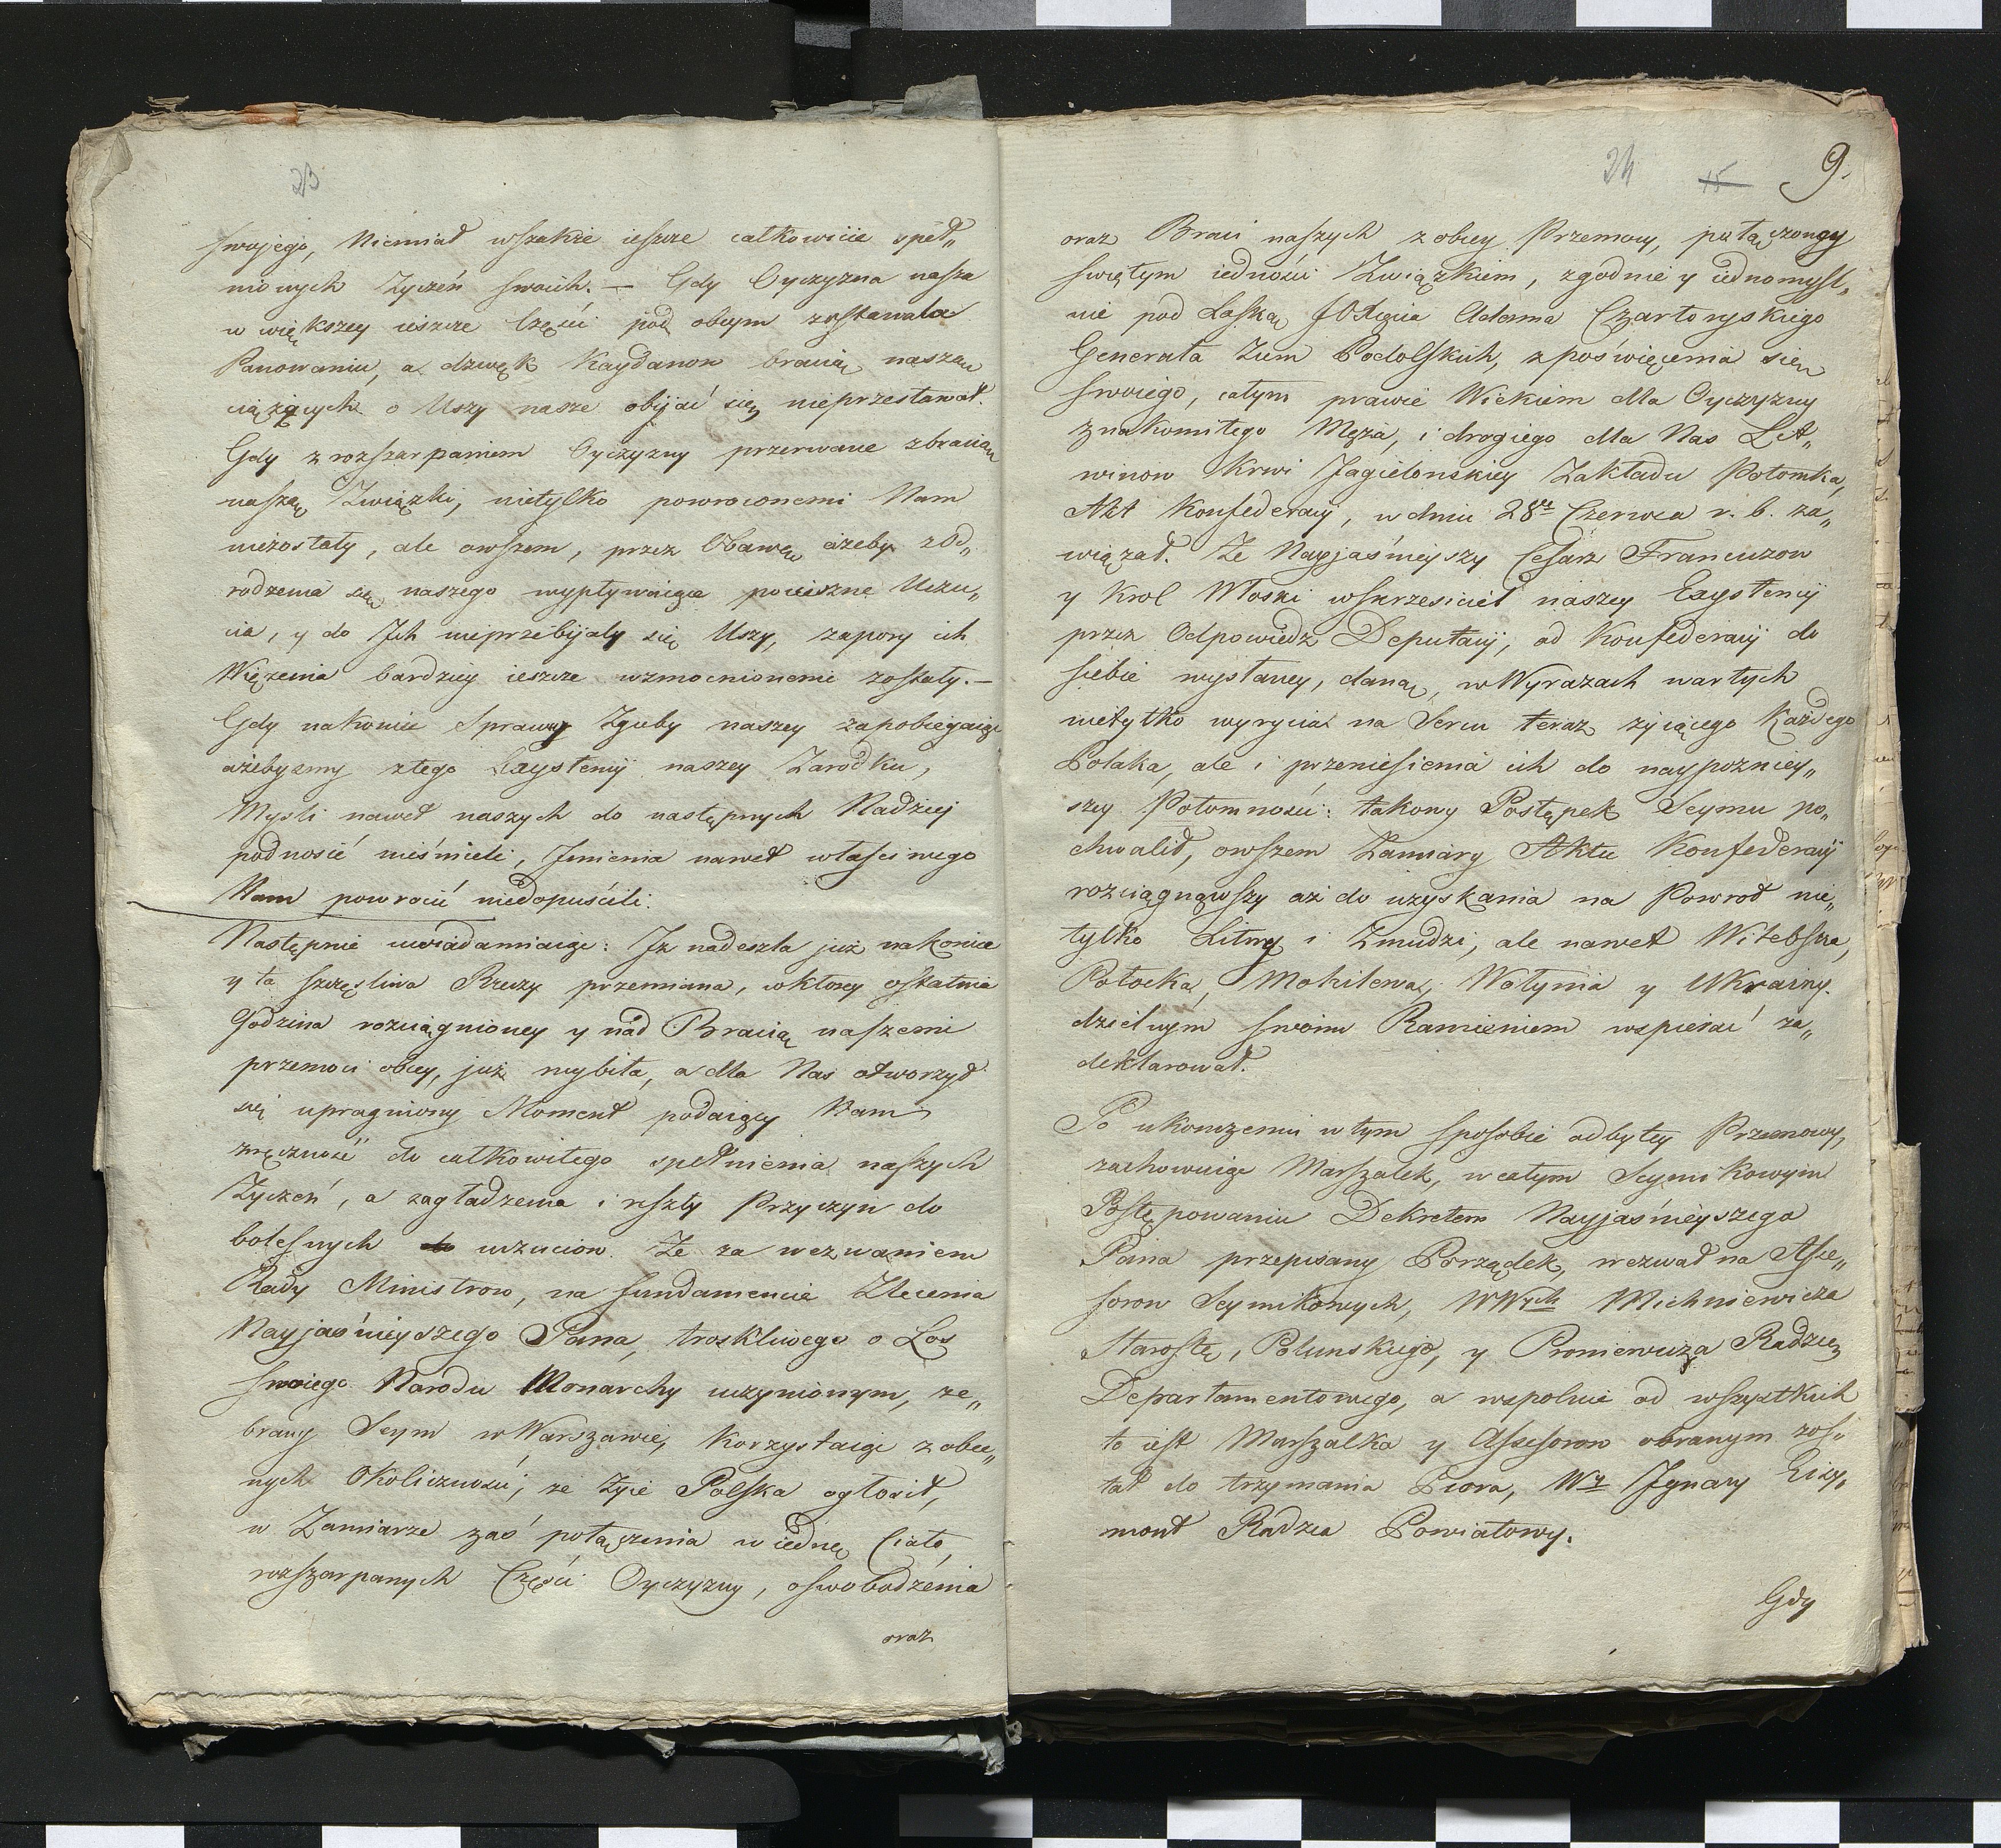 23
swojego, Niemiał wszakże ieszcze całkowicie speł„
nionych Życzeń swoich. — Gdy Oyczyzna nasza
w większey ieszcze Części pod obcym zostawała
Panowaniu, a dzwęk Kaydanow bracią naszą
ciążących o Uszy nasze obijać się nieprzestawał.
Gdy z rozszarpaniem Oyczyzny przerwane z bracią
naszą Związki, nietylko powroconemi Nam
niezostały, ale owszem, przez Obawę ażeby z Od„
rodzenia się naszego wypływaiące pocieszne Uczu„
cia, y do Jch nieprzebijały się Uszy, zapory ich
Więzienia bardziey ieszcze wzmocnionemi zostały. —
Gdy nakoniec Sprawcy Zguby naszey zapobiegaiąc
ażebyzmy ztego Exystencyi naszey Zarodku,
Mysli nawet naszych do następnych Nadziej
podnosić nieśmieli, Jmienia nawet właściwego
Nam powrocić niedopuścili.
Następnie uwiadamiaiąc: Jż nadeszła już nakoniec
y ta szczęsliwa Rzeczy przemiana, wktorey ostatnia
Godzina rozciągnioney y nad Bracią naszemi
przemoci obcey, już wybiła, a dla Nas otworzył
się upragniony Moment podaiący Nam
zręczność do całkowitego spełnienia naszych
Życzeń, a zagładzenia i reszty Przyczyn do
bolesnych do uczuciow. Że za wezwaniem
Rady Ministrow, na fundamencie Zlecenia
Nayjaśnieyszego Pana, troskliwego o Los
swoiego Narodu Monarchy uczynionym, ze„
brany Seym w Warszawie, Korzystaiąc z obec„
nych Okoliczności, że żyie Polska ogłosił,
w Zamiarze zaś połączenia w iedne Ciało,
rozszarpanych Części Oyczyzny, oswobodzenia
oraz
24 15 9.
oraz Braci naszych z obcey Przemocy, połączoney
swiętym iedności Związkiem, zgodnie y iednomysl„
nie pod Laską JO Xięcia Adama Czartoryskiego
Generała Ziem Podolskich, z poświęcenia się
swoiego, całym prawie Wiekiem dla Oyczyzny
znakomitego Męża, i drogiego dla Nas Lit„
winow Krwi Jagielonskiey Zakładu Potomka,
Akt Konfederacyi, w dniu 28go Czerwca r. b. za„
wiązał. Że Nayjaśnieyszy Cesarz Francuzow
y Krol Włoski wskrzesiciel naszey Exystencyi
przez Odpowiedz Deputacyi, od Konfederacyi do
siebie wysłaney, daną, w Wyrazach wartych
nietylko wyrycia na Sercu teraz zyiącego Każdego
Polaka, ale i przeniesienia ich do naypozniey„
szey Potomności: takowy Postępek Seymu po„
chwalił, owszem Zamiary Aktu Konfederacyi
rozciągnąwszy aż do uzyskania na Powrot nie„
tylko Litwy i Zmudzi, ale nawet Witebska,
Połocka, Mohilewa, Wołynia y Ukrainy.
dzielnym swoim Ramieniem wspierać za„
deklarował.
Po ukonczeniu wtym sposobie odbytey Przemowy,
zachowuiąc Marszałek, w całym Seymikowym
Postępowaniu Dekretem Nayjaśnieyszego
Pana przepisany Porządek, wezwał na Asse„
sorow Seymikowych, WWych Michniewicza
Starostę, Polunskiego, y Proniewicza Radzcę
Departamentowego, a wspolnie od wszystkich
to iest Marszałka y Assesorow obranym zos„
tał do trzymania Piora, Wy Jgnacy Eisy„
mont Radzca Powiatowy.
Gdy